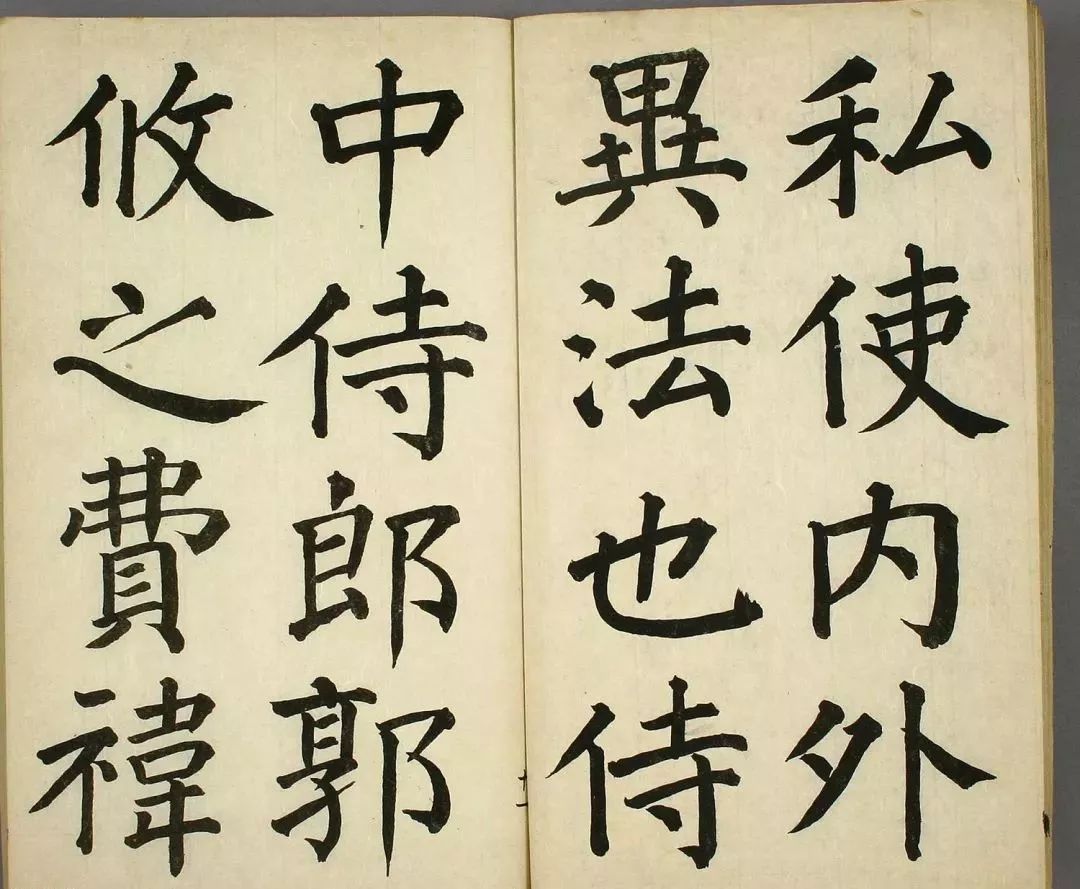 私使内外
異法也侍
中侍郎郭
攸之費禕
十二